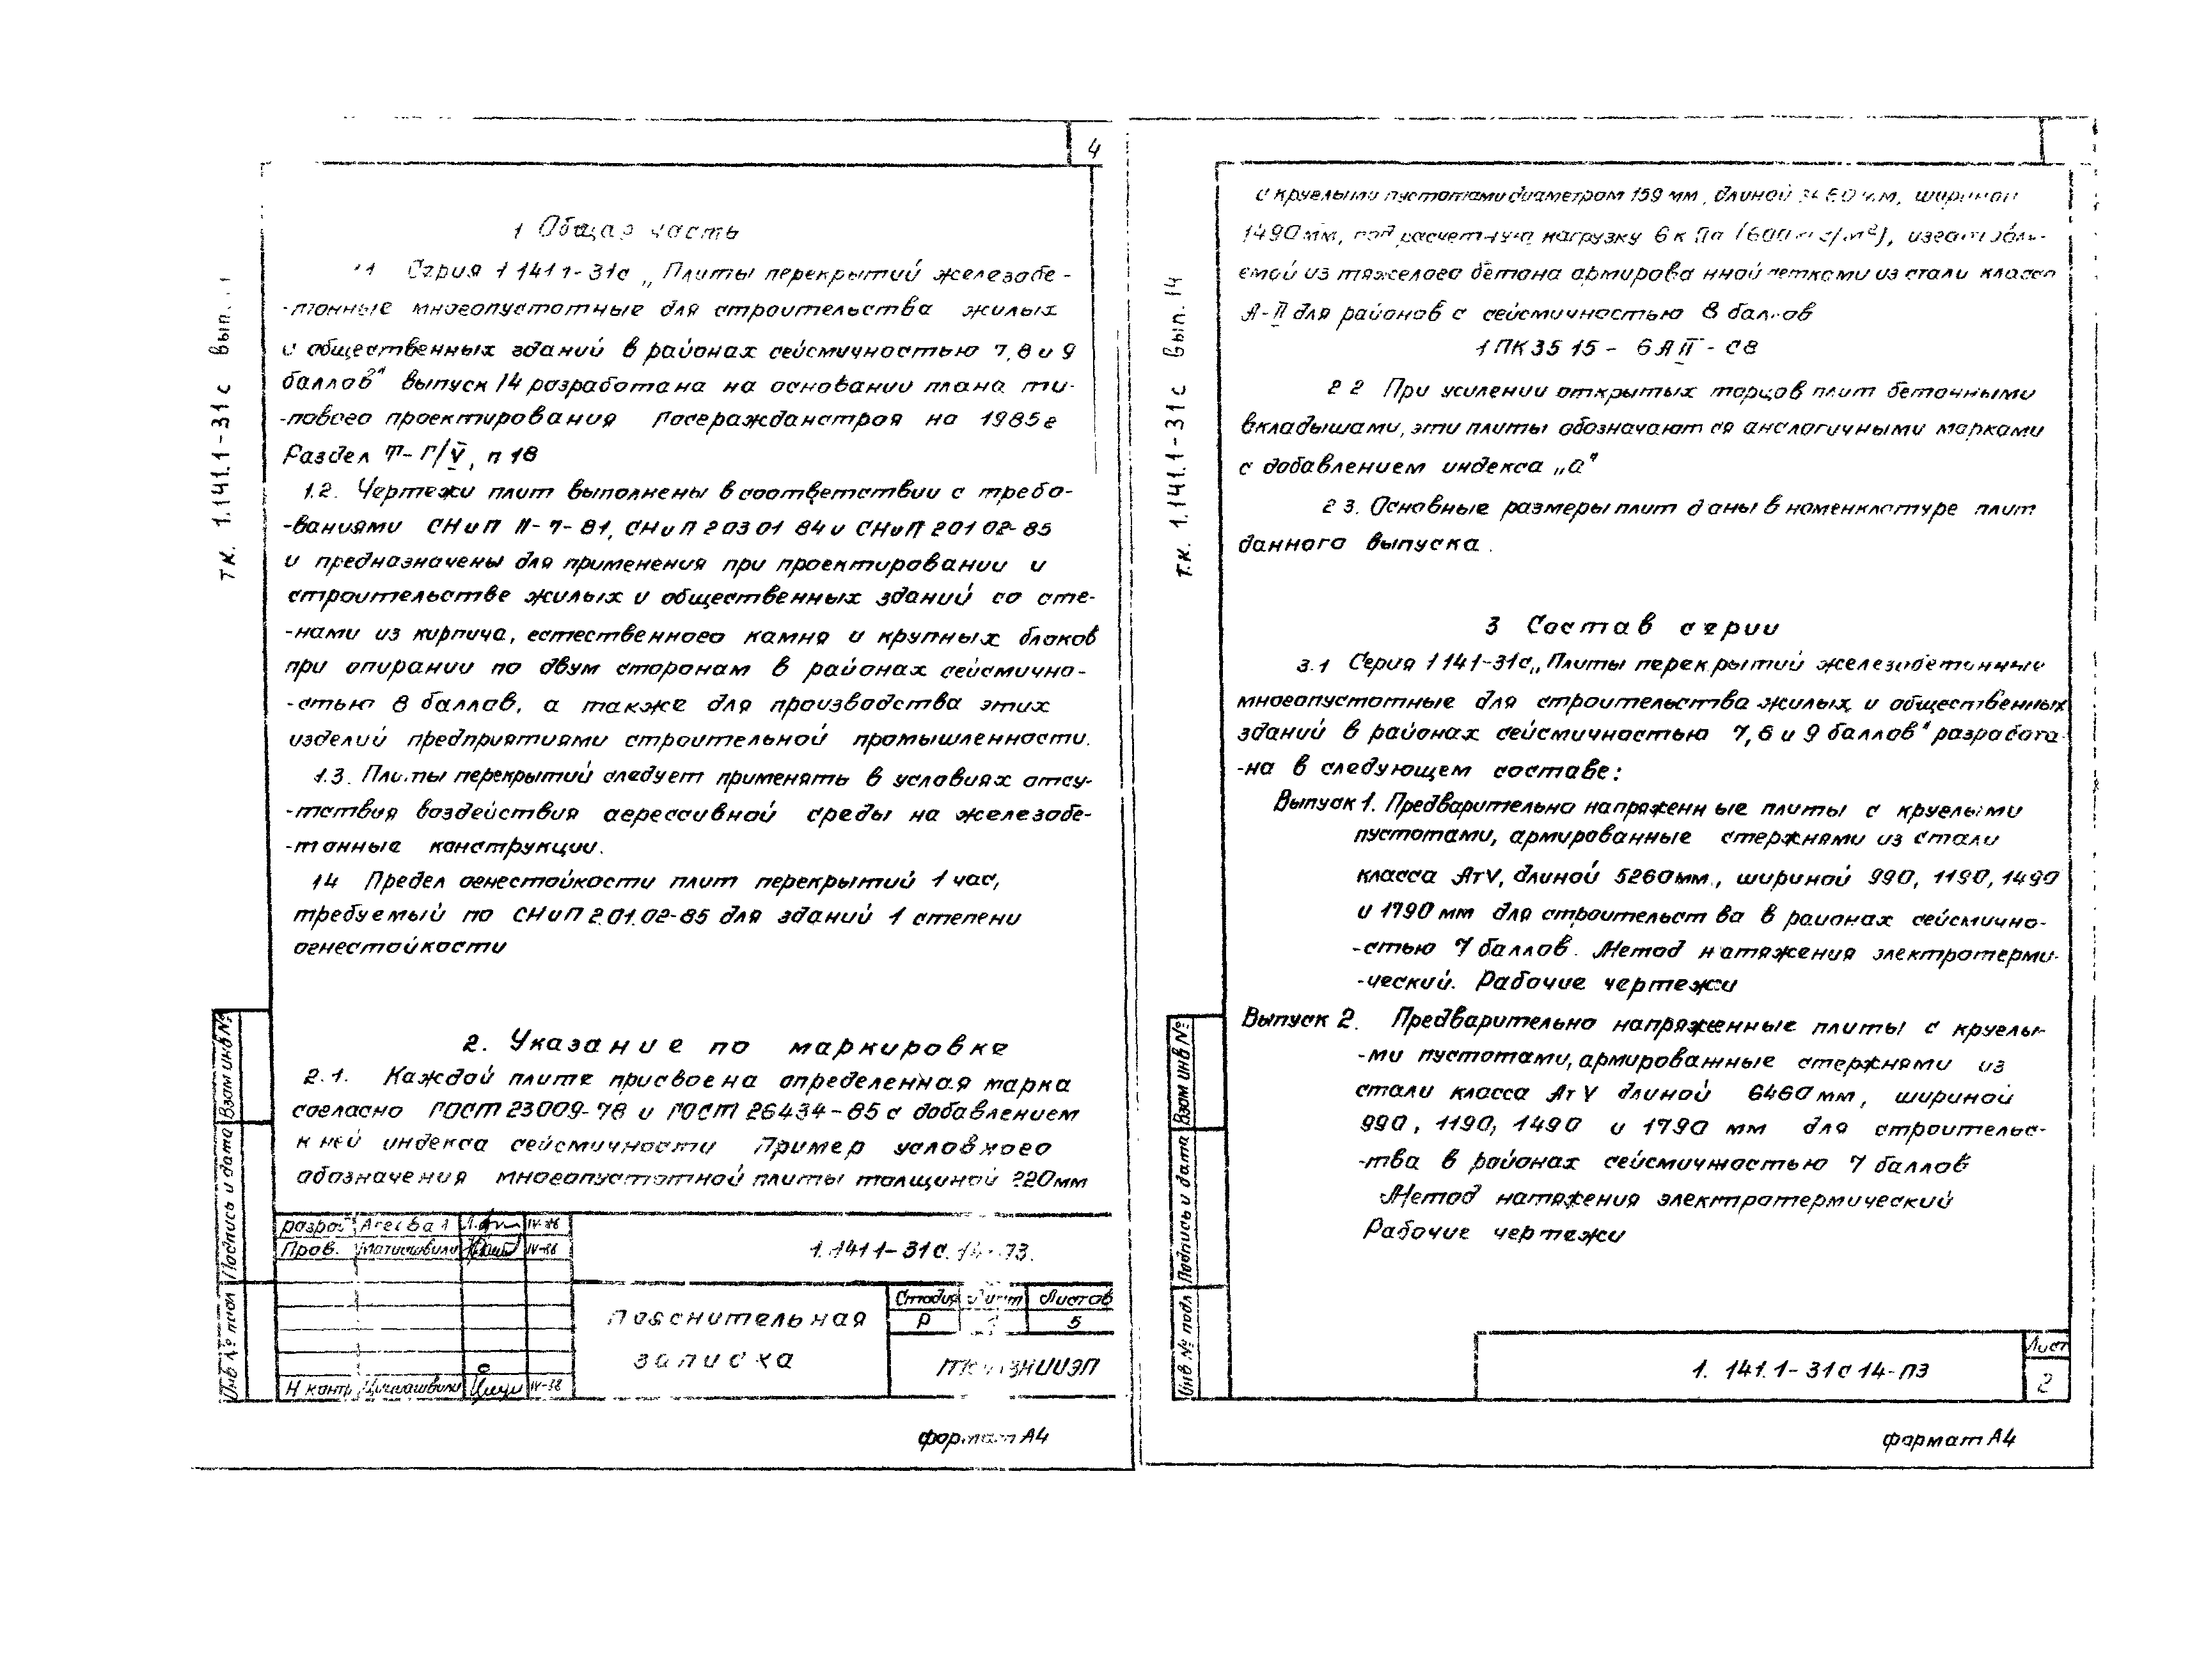 4
1 Общая часть
1 Серия 1 141 1-31с „Плиты перекрытий железобе-
-тонные многопустотные для строительства жилых
и общественных зданий в районах сейсмичностью 7, 8 и 9
баллов" выпуск 14 разработана на основании плана ти-
-пового проектирования Госгражданстроя на 1985г
Раздел Т-Г/V, п 18
1.2. Чертежи плит выполнены в соответствии с требо-
-ваниями СНиП II-7-81, СНиП 2 03 01 84 и СНиП 2 01 02-85
и предназначены для применения при проектировании и
строительстве жилых и общественных зданий со сте-
-нами из кирпича, естественного камня и крупных блоков
при опирании по двум сторонам в районах сейсмично-
-стью 8 баллов, а также для производства этих
изделий предприятиями строительной промышленности.
1.3. Плиты перекрытий следует применять в условиях отсу-
-тствия воздействия агрессивной среды на железобе-
-тонные конструкции.
14 Предел огнестойкости плит перекрытий 1 час,
требуемый по СНиП 2.01.02-85 для зданий 1 степени
огнестойкости
2. Указание по маркировке
2.1. Каждой плите присвоена определенная марка
согласно ГОСТ 23009-78 и ГОСТ 26434-85 с добавлением
к ней индекса сейсмичности Пример условного
обозначения многопустотной плиты толщиной 220мм
тк. 1.141.1-31с вып.
Инв № подл Подпись и дата Взам инв №
Пров. IV-86
Н контр
1.141 1-31с.14-ПЗ.
Пояснительная
записка
Стадия Лист Листов
Р 1 5
формат А4
с круглыми пустотами диаметром 159 мм, длиной мм, шириной
1490мм, под расчетную нагрузку 6 кПа (600 кгс/м²), изготовля-
емой из тяжелого бетона армированной сетками из стали класса
А-II для районов с сейсмичностью 8 баллов
1ПК35 15 - 6АII - С8
2 2 При усилении открытых торцов плит бетонными
вкладышами, эти плиты обозначаются аналогичными марками
с добавлением индекса „а"
2 3. Основные размеры плит даны в номенклатуре плит
данного выпуска.
3 Состав серии
3.1 Серия 1 141-31с „Плиты перекрытий железобетонные
многопустотные для строительства жилых и общественных
зданий в районах сейсмичностью 7, 8 и 9 баллов" разработа-
-на в следующем составе:
Выпуск 1. Предварительно напряженные плиты с круглыми
пустотами, армированные стержнями из стали
класса АтV, длиной 5260мм., шириной 990, 1190, 1490
и 1790 мм для строительства в районах сейсмично-
-стью 7 баллов. Метод натяжения электротерми-
-ческий. Рабочие чертежи
Выпуск 2. Предварительно напряженные плиты с круглы-
-ми пустотами, армированные стержнями из
стали класса АтV длиной 6460мм, шириной
990, 1190, 1490 и 1790 мм для строительс-
-тва в районах сейсмичностью 7 баллов
Метод натяжения электротермический
Рабочие чертежи
т.к. 1.141.1-31с вып. 14
Инв № подл Подпись и дата Взам инв №
1. 141.1-31с 14-ПЗ
Лист
2
формат А4